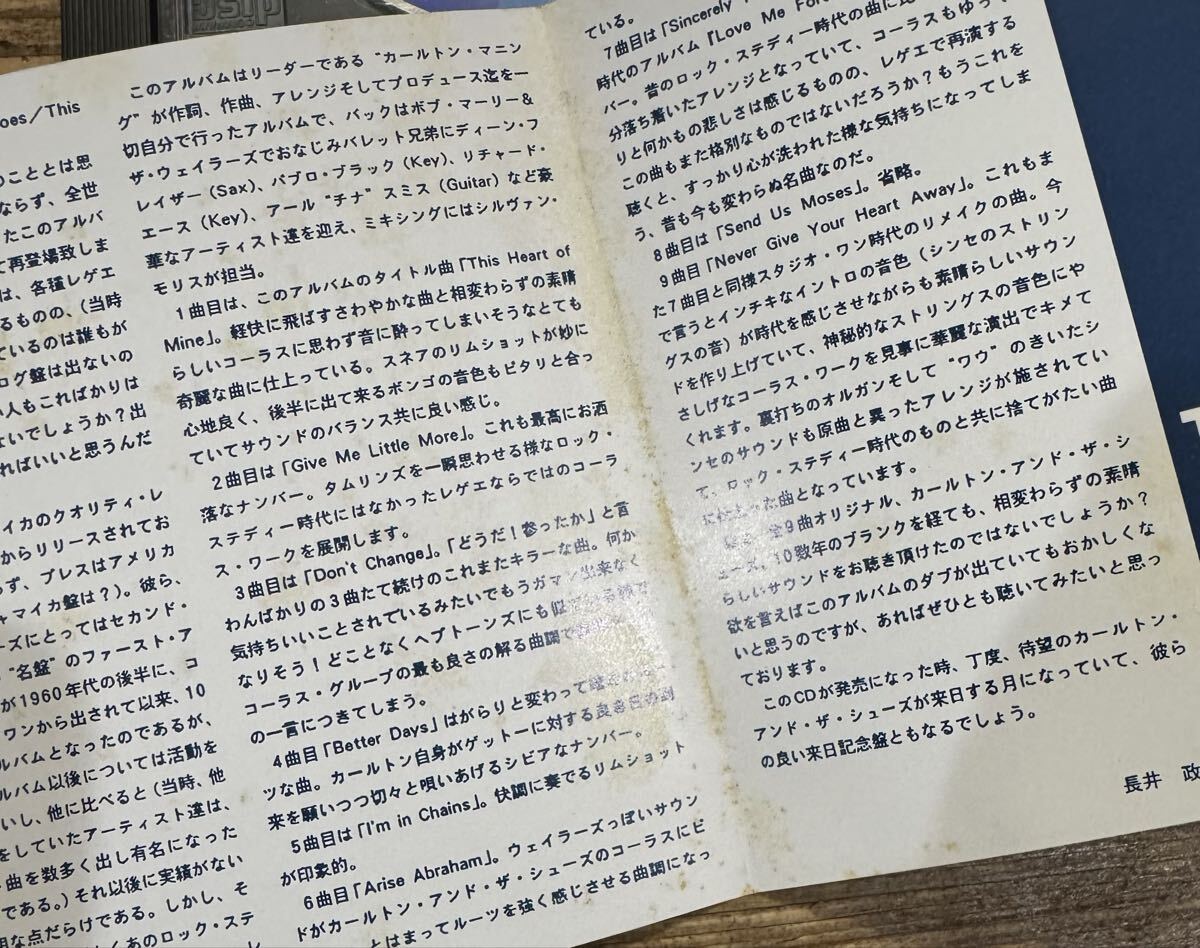 disc
oes／This
のこととは思
ならず、全世
たこのアルバ
て再登場致しま
は、各種レゲエ
るものの、（当時
ているのは誰もが
ログ盤は出ないの
い人もこればかりは
ないでしょうか？出
ればいいと思うんだ
イカのクオリティ・レ
からリリースされてお
らず、プレスはアメリカ
ャマイカ盤は？）。彼ら、
ーズにとってはセカンド・
“名盤”のファースト・ア
が1960年代の後半に、コ
ワンから出されて以来、10
ルバムとなったのであるが、
ルバム以後については活動を
いし、他に比べると（当時、他
をしていたアーティスト達は、
曲を数多く出し有名になった
である。）それ以後に実績がない
明な点だらけである。しかし、そ
くあのロック・ステ
このアルバムはリーダーである“カールトン・マニン
グ”が作詞、作曲、アレンジそしてプロデュース迄を一
切自分で行ったアルバムで、バックはボブ・マーリー＆
ザ・ウェイラーズでおなじみバレット兄弟にディーン・フ
レイザー（Sax）、パブロ・ブラック（Key）、リチャード・
エース（Key）、アール“チナ”スミス（Guitar）など豪
華なアーティスト達を迎え、ミキシングにはシルヴァン・
モリスが担当。
1曲目は、このアルバムのタイトル曲「This Heart of
Mine」。軽快に飛ばすさわやかな曲と相変わらずの素晴
らしいコーラスに思わず音に酔ってしまいそうなとても
奇麗な曲に仕上っている。スネアのリムショットが妙に
心地良く、後半に出て来るボンゴの音色もピタリと合っ
ていてサウンドのバランス共に良い感じ。
2曲目は「Give Me Little More」。これも最高にお洒
落なナンバー。タムリンズを一瞬思わせる様なロック・
ステディー時代にはなかったレゲエならではのコーラ
ス・ワークを展開します。
3曲目は「Don't Change」。「どうだ！参ったか」と言
わんばかりの3曲たて続けのこれまたキラーな曲。何か
気持ちいいことされているみたいでもうガマン出来なく
なりそう！どことなくヘプトーンズにも似
コーラス・グループの最も良さの解る曲調で
の一言につきてしまう。
4曲目「Better Days」はがらりと変わって
ツな曲。カールトン自身がゲットーに対する良き日の到
来を願いつつ切々と唄いあげるシビアなナンバー。
5曲目は「I'm in Chains」。快調に奏でるリムショット
が印象的。
6曲目「Arise Abraham」。ウェイラーズっぽいサウン
ドがカールトン・アンド・ザ・シューズのコーラスにピ
とはまってルーツを強く感じさせる曲調になっ
ている。
7曲目は「Sincerely
時代のアルバム『Love Me For
バー。昔のロック・ステディー時代の曲に比
分落ち着いたアレンジとなっていて、コーラスもゆっ
りと何かもの悲しさは感じるものの、レゲエで再演する
この曲もまた格別なものではないだろうか？もうこれを
聴くと、すっかり心が洗われた様な気持ちになってしま
う、昔も今も変わらぬ名曲なのだ。
8曲目は「Send Us Moses」。省略。
9曲目「Never Give Your Heart Away」。これもま
た7曲目と同様スタジオ・ワン時代のリメイクの曲。今
で言うとインチキなイントロの音色（シンセのストリン
グスの音）が時代を感じさせながらも素晴らしいサウン
ドを作り上げていて、神秘的なストリングスの音色にや
さしげなコーラス・ワークを見事に華麗な演出でキメて
くれます。裏打ちのオルガンそして“ワウ”のきいたシ
ンセのサウンドも原曲と異ったアレンジが施されてい
て、ロック・ステディー時代のものと共に捨てがたい曲
った曲となっています。
全9曲オリジナル、カールトン・アンド・ザ・シ
ューズ、10数年のブランクを経ても、相変わらずの素晴
らしいサウンドをお聴き頂けたのではないでしょうか？
欲を言えばこのアルバムのダブが出ていてもおかしくな
いと思うのですが、あればぜひとも聴いてみたいと思っ
ております。
このCDが発売になった時、丁度、待望のカールトン・
アンド・ザ・シューズが来日する月になっていて、彼ら
の良い来日記念盤ともなるでしょう。
長井 政